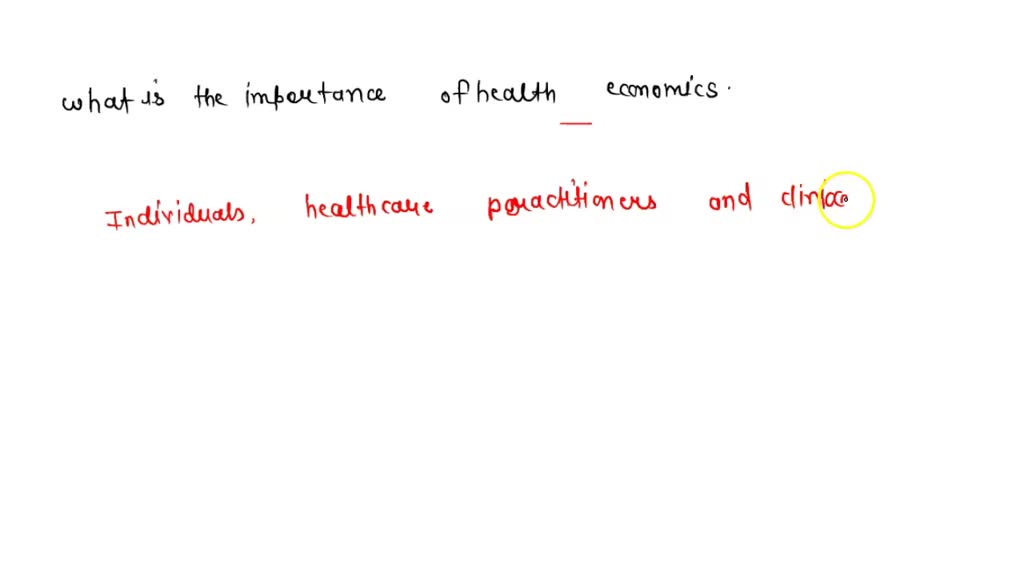 what is the importance of health economics.
Individuals, healthcare practitioners and clinic